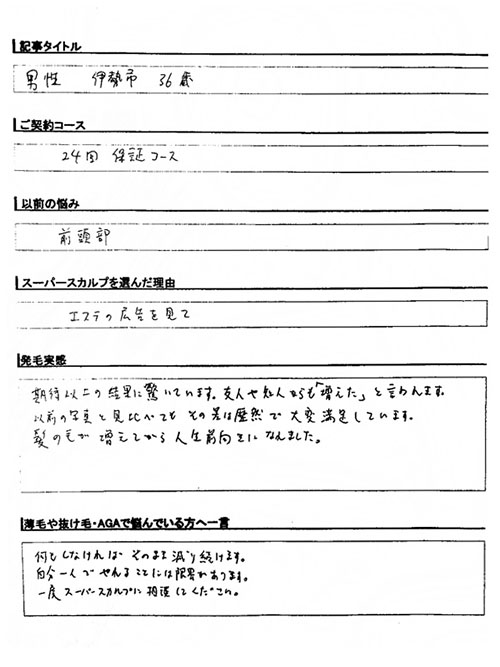 記事タイトル
男性 伊勢市 36歳
ご契約コース
24回 保証コース
以前の悩み
前頭部
スーパースカルプを選んだ理由
エステの広告を見て
発毛実感
期待以上の結果に驚いています。友人や知人からも「増えた」と言われます。
以前の写真と見比べても その差は歴然で 大変満足しています。
髪の毛が 増えてから 人生前向きになれました。
薄毛や抜け毛・AGAで悩んでいる方へ一言
何もしなければ そのまま減り続けます。
自分一人で やれることには限界があります。
一度 スーパースカルプに相談してください。